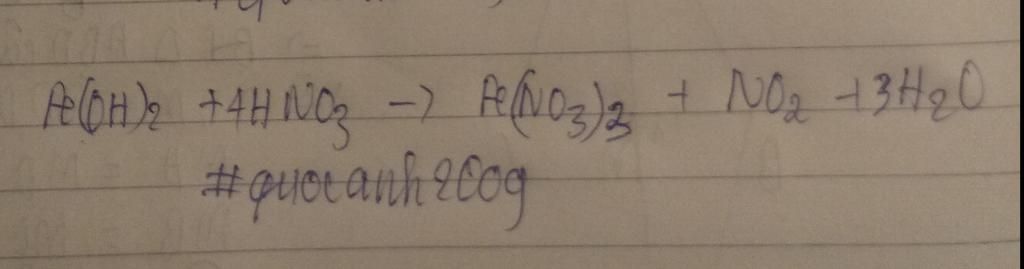 Fe(OH)2 + 4HNO3 -> Fe(NO3)3 + NO2 + 3H2O
#quocanh2609